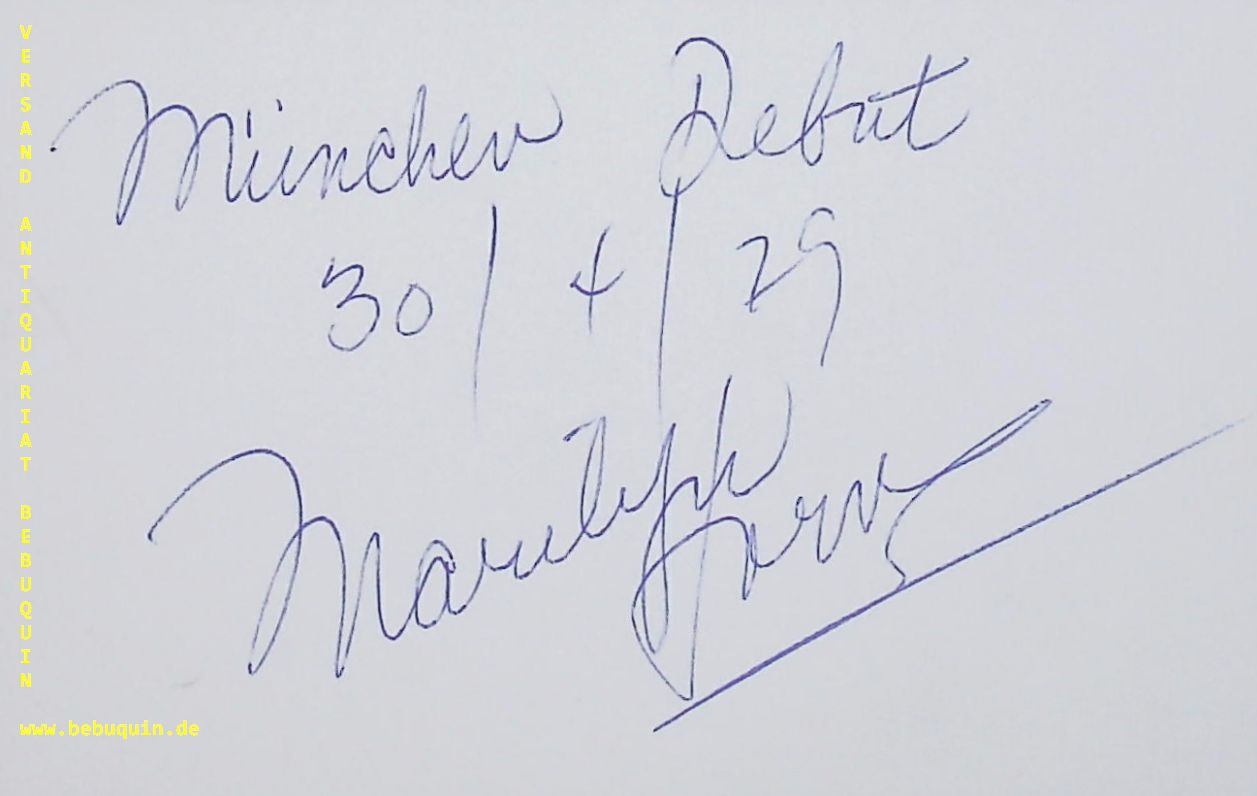 München Debut
30/4/79
Marilyn Horne
VERSAND ANTIQUARIAT BEBUQUIN
www.bebuquin.de